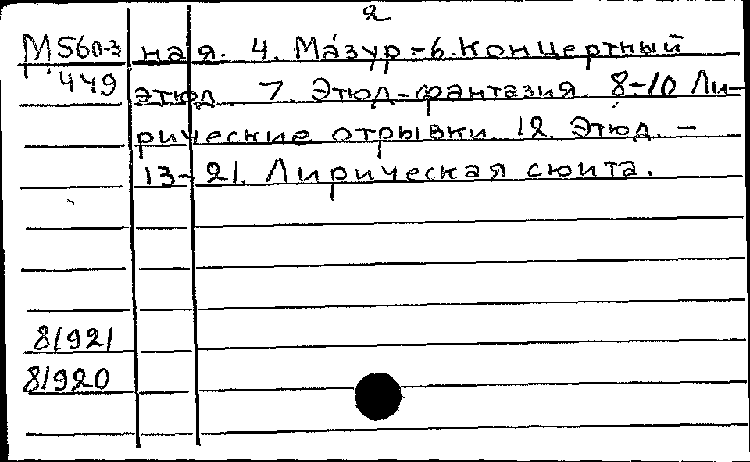 2
М560-3 ная. 4. Мазур-6. Концертный
449 этюд. 7. Этюд-фантазия 8-10 Ли-
рические отрывки. 12. Этюд. -
13-21. Лирическая сюита.
81921
81920